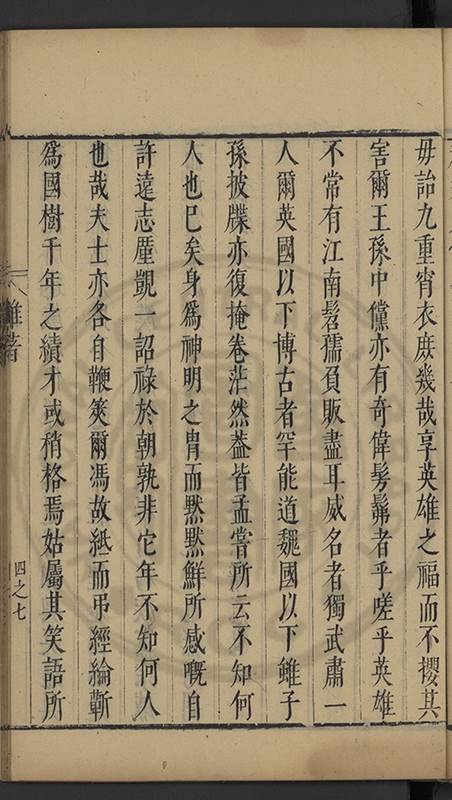 毋詒九重宵衣庶幾哉享英雄之福而不攖其
害爾王孫中儻亦有奇偉髣髴者乎嗟乎英雄
不常有江南髫孺負販盡耳威名者獨武肅一
人爾英國以下博古者罕能道魏國以下雖子
孫披牒亦復掩卷茫然葢皆孟嘗所云不知何
人也已矣身爲神明之胄而默默鮮所感嘅自
許遠志厪覬一詔祿於朝孰非它年不知何人
也哉夫士亦各自鞭筴爾馮故紙而弔經綸蘄
爲國樹千年之績才或稍格焉姑屬其笑語所
雜著
四之七